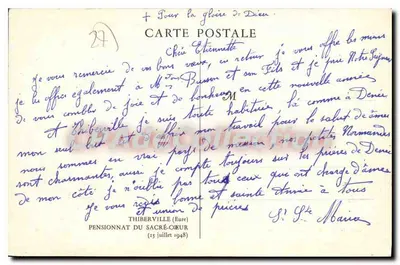 27
+ Pour la gloire de Dieu
CARTE POSTALE
Chère Etiennette
Je vous remercie de vos bons vœux, en retour je vous offre les miens
je les offre également à Mr Buisson et son Fils et je prie Notre Seigneur
de vous combler de joie et de bonheur en cette nouvelle année
et Thiberville je suis toute habituée là comme à
mon seul but et mon travail pour le salut des âmes
nous sommes en vrai pays de mission nos petites Normandes
sont charmantes, aussi je compte toujours sur les prières de
de mon côté je n'oublie pas tous ceux que ont charge d'âmes
Je vous bonne et sainte Année à tous
et union de prières
Sr Ste Maria
THIBERVILLE (Eure)
PENSIONNAT DU SACRÉ-CŒUR
(25 juillet 1948)